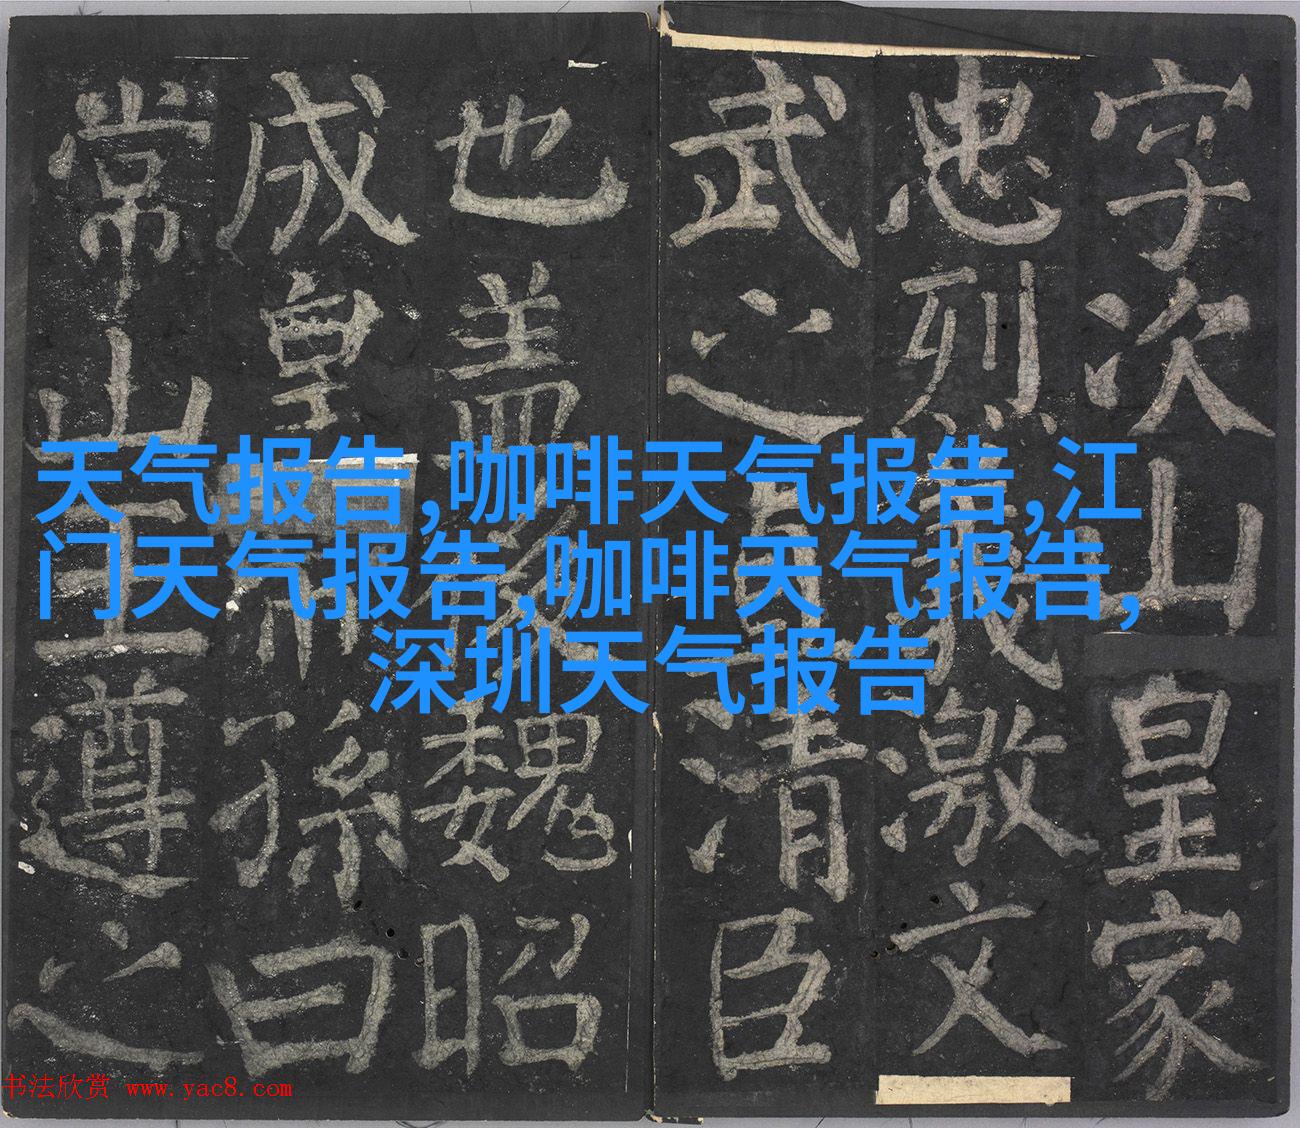 字次山皇家
忠烈義激文
武之直清臣
也盖後魏昭
成皇帝孫曰
常山王遵之
天气报告,咖啡天气报告,江
门天气报告,咖啡天气报告,
深圳天气报告
书法欣赏 www.yac8.com